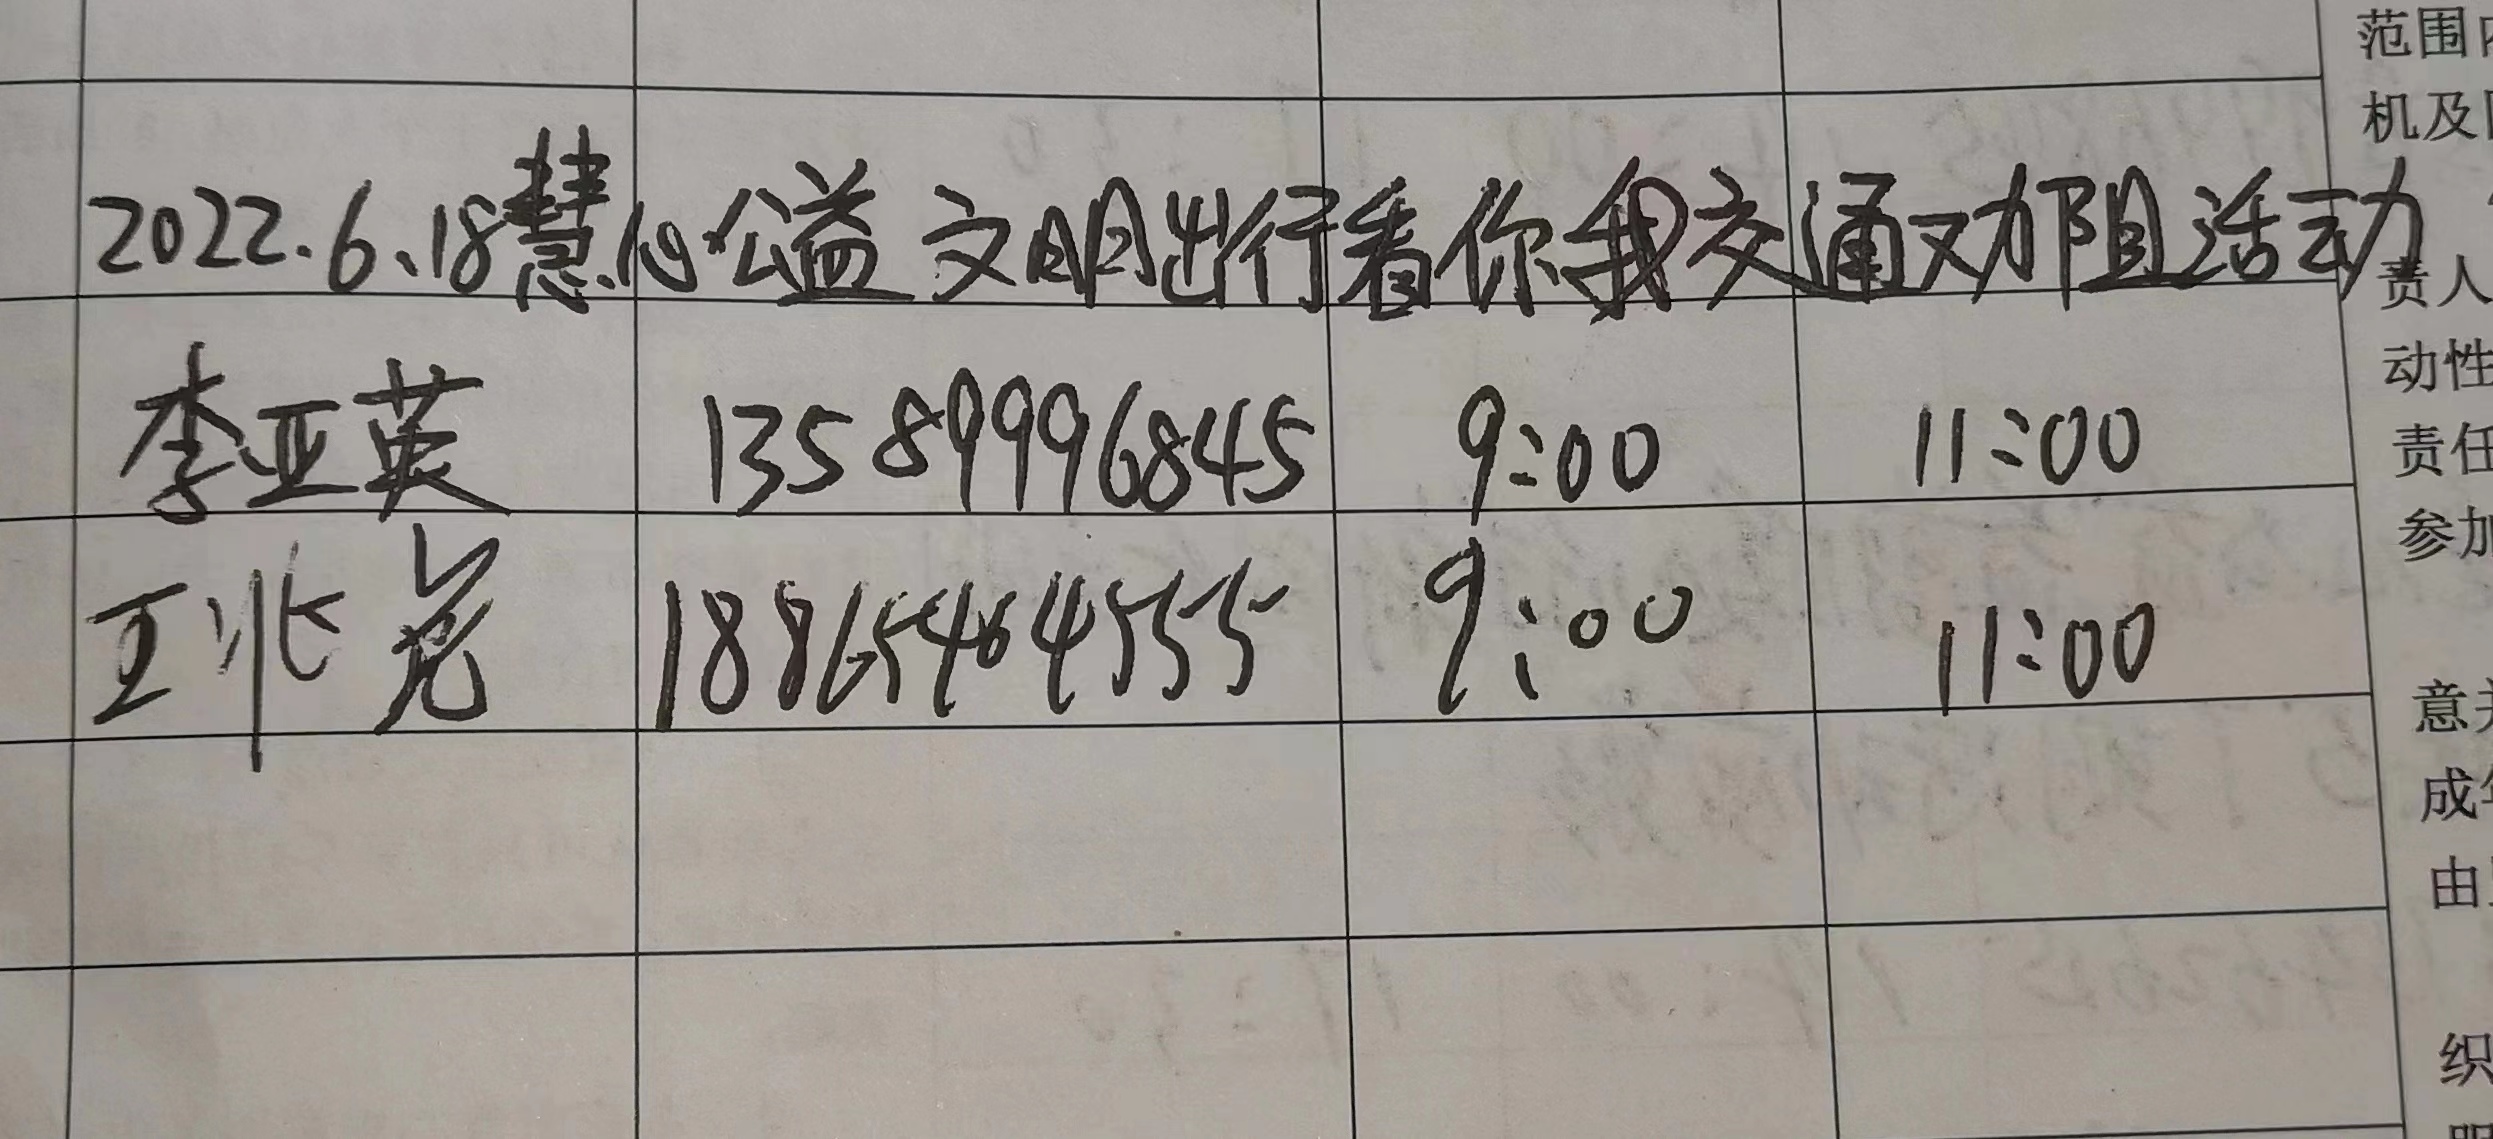 2022.6.18慧心公益文明出行看你我交通劝阻活动
李亚英 13589996845 9:00 11:00
王兆光 18865464555 9:00 11:00
范围
机及
责人
动性
责任
参加
意
成
由
织